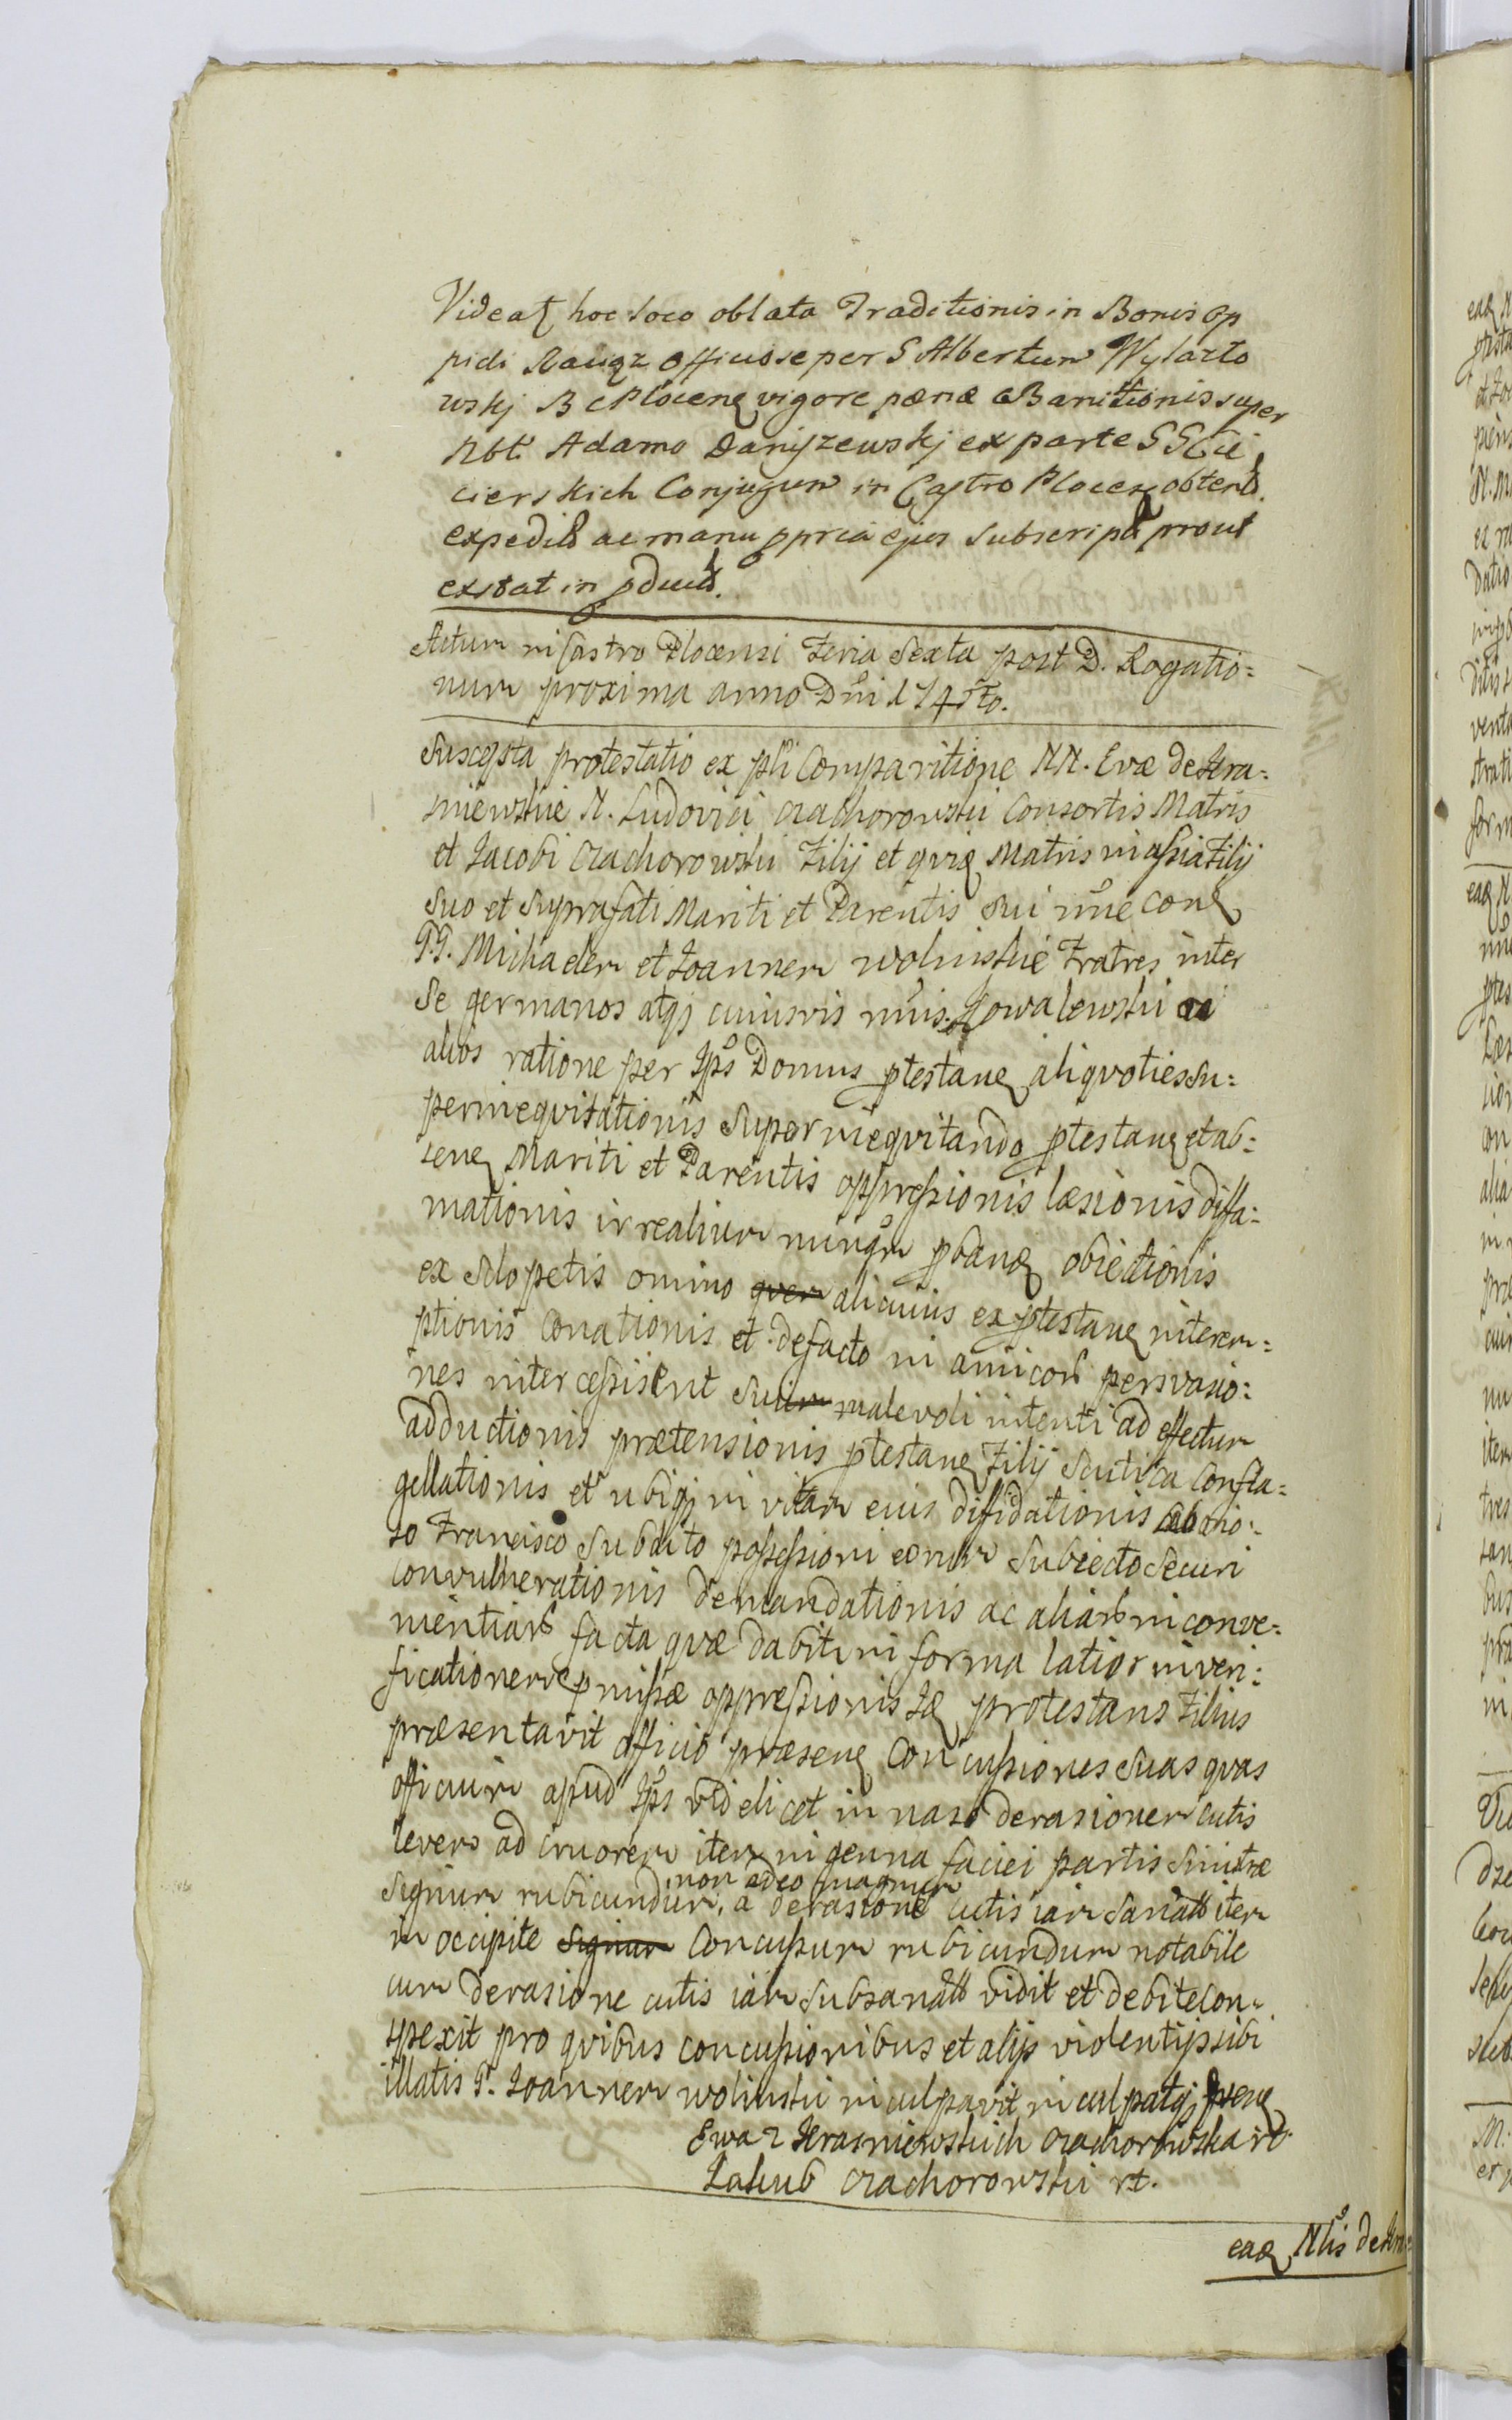 Videat hoc loco oblata Traditionis in Bonis Op
pidi Raciąz officiose per G Albertum Wylazło
wskj B C Plocen vigore pœnæ Banitionis super
Nbt. Adamo Daniszewskj ex parte GG Cie
cierskich Conjugum in Castro Plocen obtent.
expedit ac manu ppria ejus subscripta prout
exstat in pduct.
Actum in Castro Plocensi Feria Sexta post D. Rogatio=
num proxima anno Dni 1745to.
Suscepta protestatio ex pli Comparitione NN. Evæ de Kra=
sniewskie N. Ludovici Czachorowski Consortis Matris
et Jacobi Czachorowski Filij et quidem Matris in assia Filij
suo et suprafati Mariti et Parentis sui nne con
GG. Michaelem et Joannem Wolinskie Fratres inter
se germanos atq cuiusvis nnis Kowalewski ac
alios ratione per Ips Domus ptestan aliquoties su=
perinequitationis superinequitando ptestan et ab=
sen Mariti et Parentis oppressionis læsionis diffa=
mationis irrealium nunqm pban obiectionis
ex sclopetis omino quen alicuius ex ptestan interem=
ptionis Conationis et defacto ni amicor persvasio=
nes intercessissent suum malevoli intenti ad effectum
adductionis prætensionis ptestan Filij scutica confla=
gellationis et ubiq in vitam eius diffidationis laborio=
so Francisco subdito possessioni eorum subiecto securi
convulnerationis demandationis ac aliar inconve=
nientiar facta quæ dabitur in forma latior in veri=
ficationem pmissæ oppressionis Id protestans Filius
præsentavit officio præsen Concussiones suas quas
officium apud Ips videlicet in naso derasionem cutis
levem ad cruorem item in genna faciei partis sinistræ
non adeo magnum
signum rubicundum, a derasione cutis iam sanata item
in occipite signum Concussum rubicundum notabile
cum derasione cutis iam subsanata vidit et debite con=
spexit pro quibus concussionibus et alijs violentijs sibi
illatis G. Joannem Wolinski inculpavit inculpatq pen
Ewa z Krasniewskich Czachorowska rt.
Jakub Czachorowski rt.
ead Nlis de Kra=